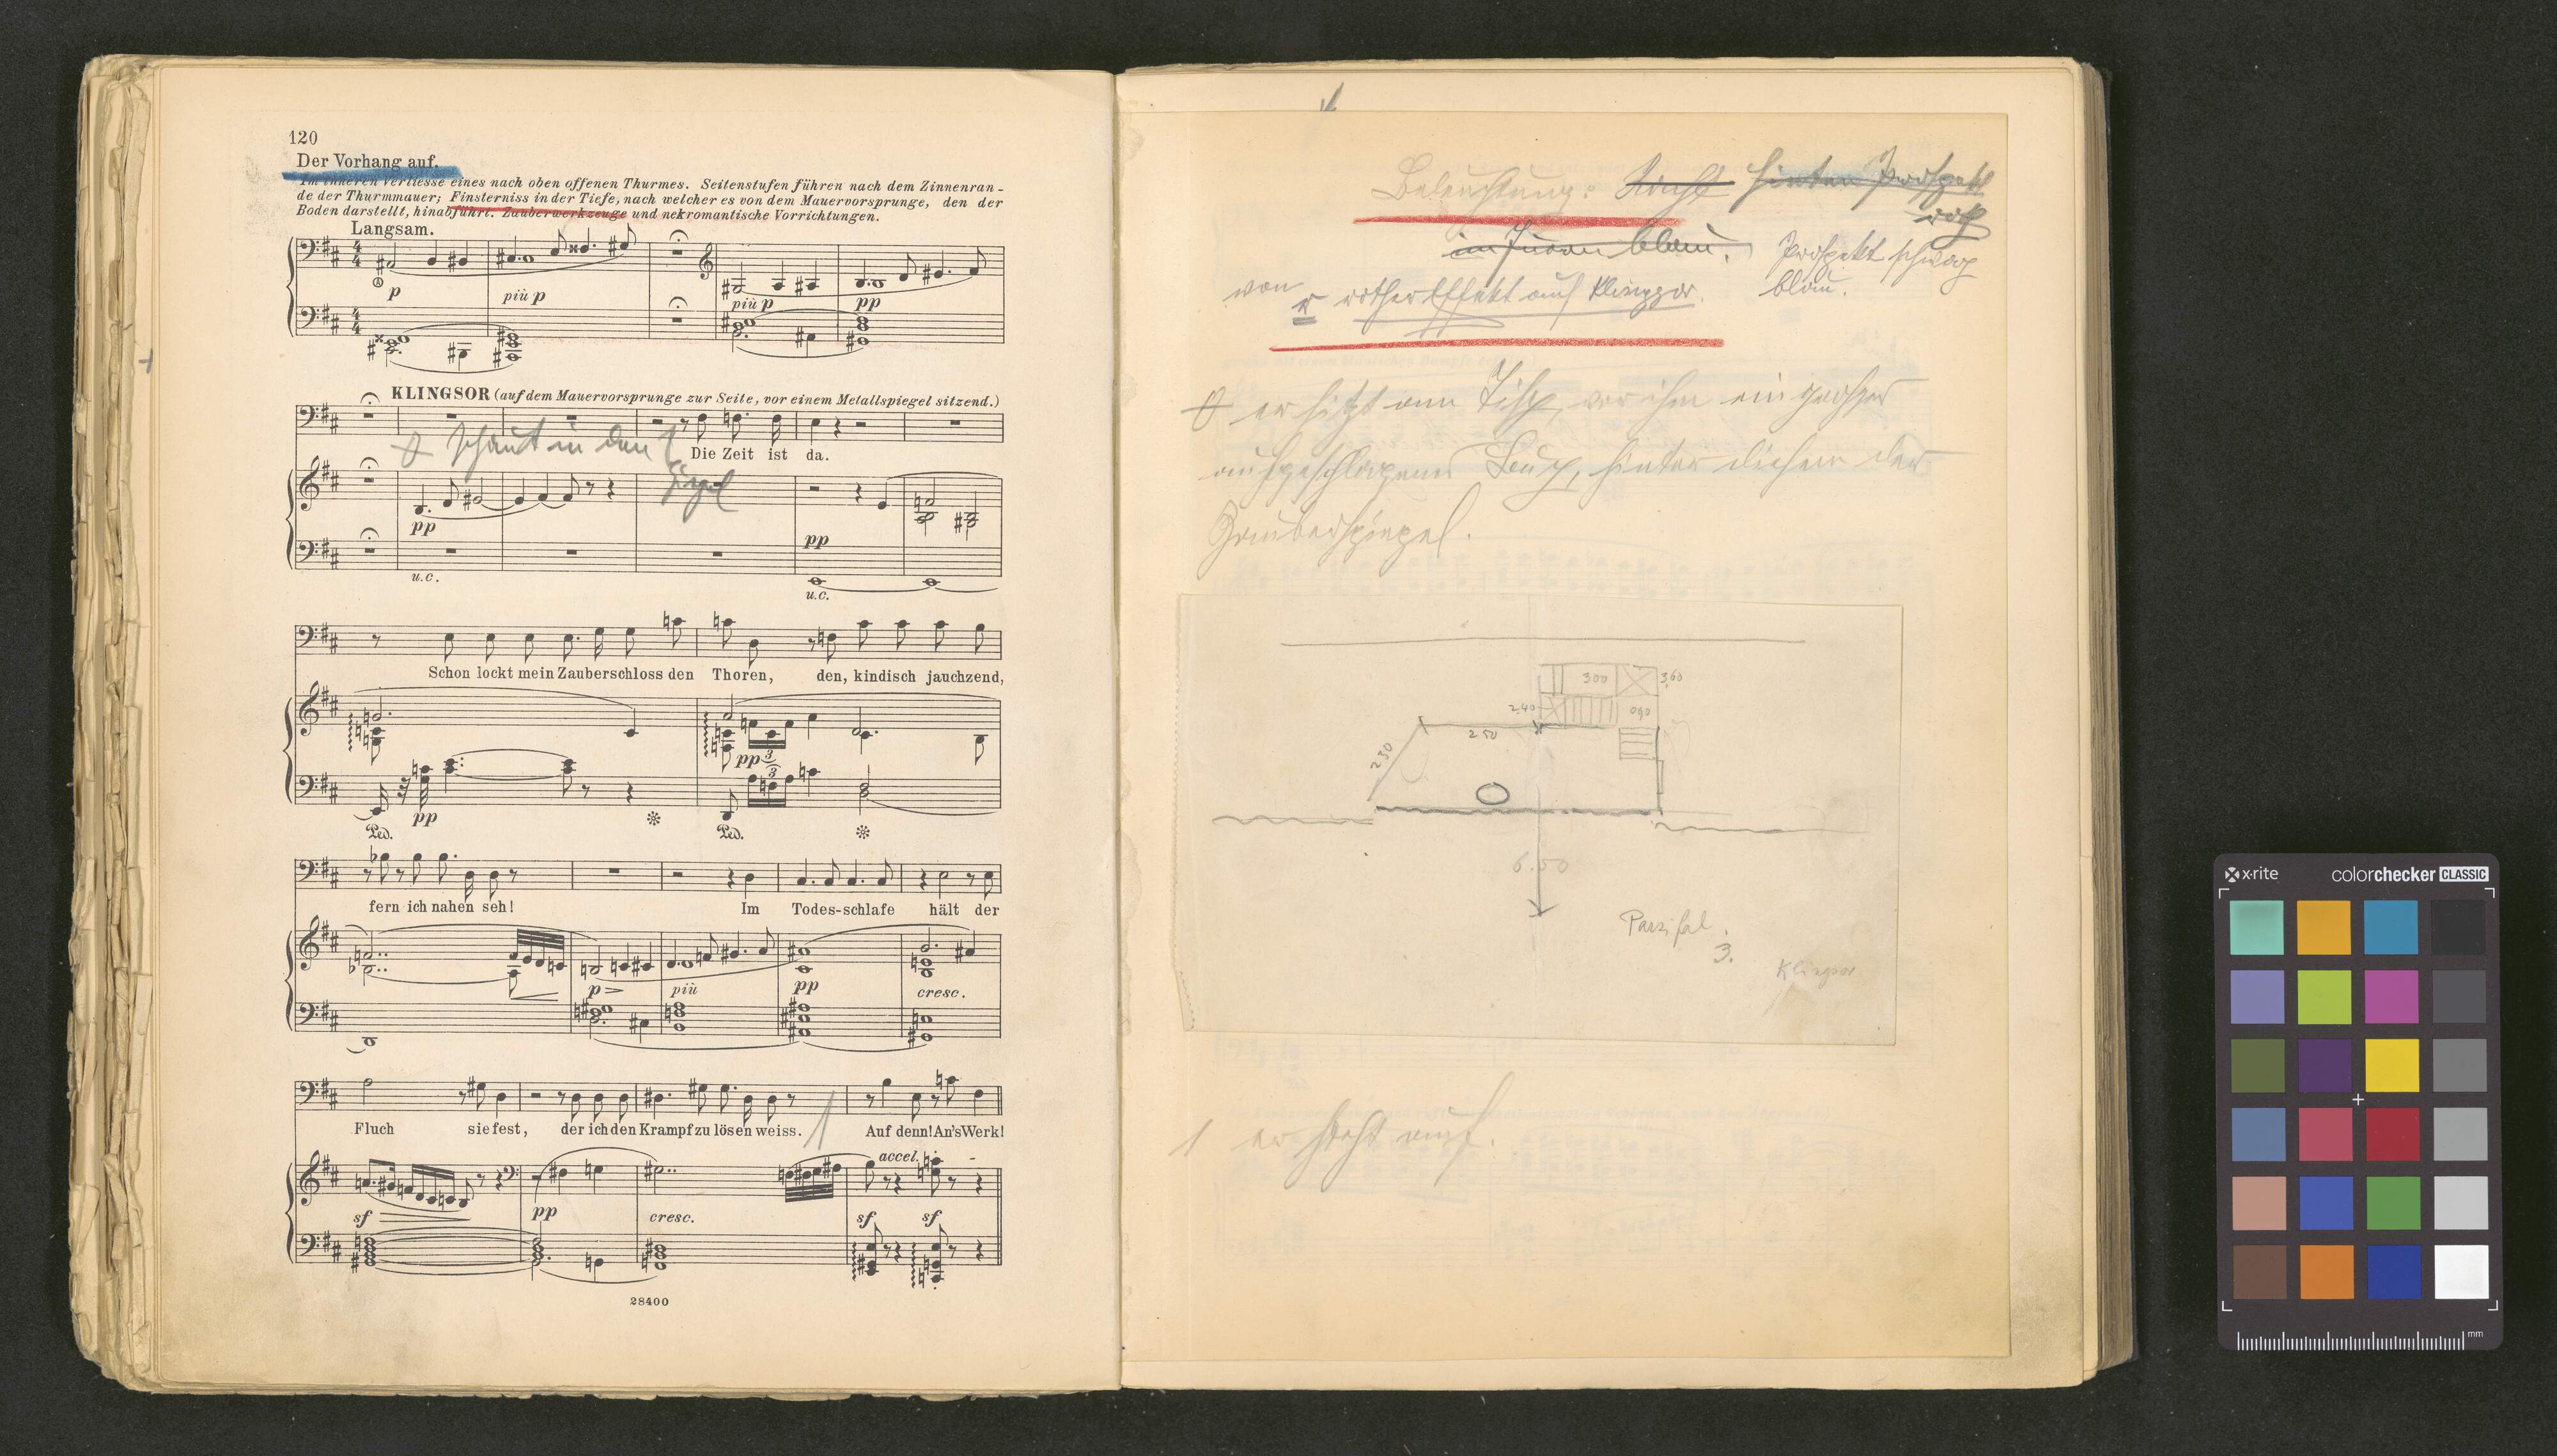 120
Der Vorhang auf.
Im inneren Verliesse eines nach oben offenen Thurmes. Seitenstufen führen nach dem Zinnenran-
de der Thurmmauer; Finsterniss in der Tiefe, nach welcher es von dem Mauervorsprunge, den der
Boden darstellt, hinabführt. Zauberwerkzeuge und nekromantische Vorrichtungen.
Langsam.
p
più p
più p
pp
KLINGSOR (auf dem Mauervorsprunge zur Seite, vor einem Metallspiegel sitzend.)
schaut in den
Spiegel
Die Zeit ist da.
pp
pp
u.c.
u.c.
Schon lockt mein Zauberschloss den Thoren, den, kindisch jauchzend,
pp 3
3
pp
Ped.
Ped.
fern ich nahen seh! Im Todes-schlafe hält der
p
più
pp
cresc.
Fluch sie fest, der ich den Krampf zu lösen weiss. Auf denn! An's Werk!
accel.
sf
pp
cresc.
sf
sf
28400
Beleuchtung: Nacht hinten Prospekt
roth
im Turm blau.
Prospekt schwarz
blau.
von r rother Effekt auf Klingsor.
er sitzt am Tisch, vor ihm ein grosses
aufgeschlagenes Buch, hinter diesem der
Zauberspiegel.
300
3,60
2.40
090
250
2.50
6.50
Parsifal.
3.
Klingsor
1 er steht auf.
x-rite
colorchecker CLASSIC
mm